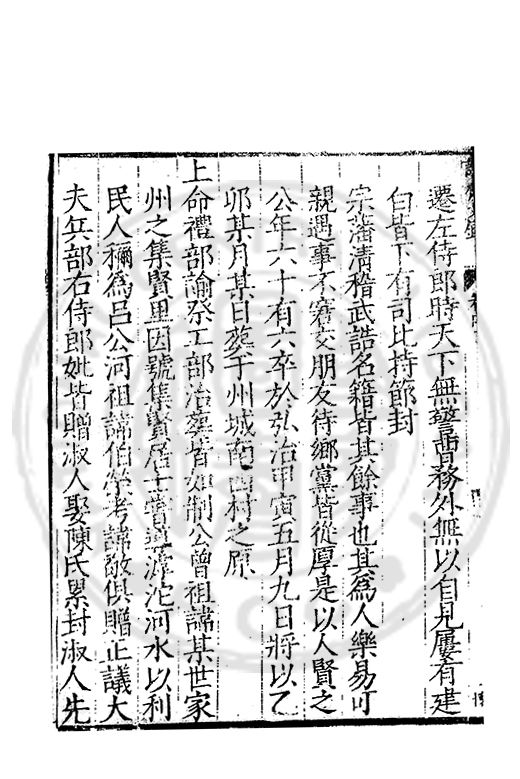 遷左侍郎時天下無警曹務外無以自見屢有建
白皆下有司比持節封
宗藩清稽武誥名籍皆其餘事也其為人樂易可
親遇事不窘交朋友待鄉黨皆從厚是以人賢之
公年六十有六卒於弘治甲寅五月九日將以乙
卯某月某日葬于州城南西村之原
上命禮部諭祭工部治葬皆如制公曾祖諱某世家
州之集賢里因號集賢居士嘗導滹沱河水以利
民人稱為呂公河祖諱伯榮考諱敬俱贈正議大
夫兵部右侍郎妣皆贈淑人娶陳氏累封淑人先